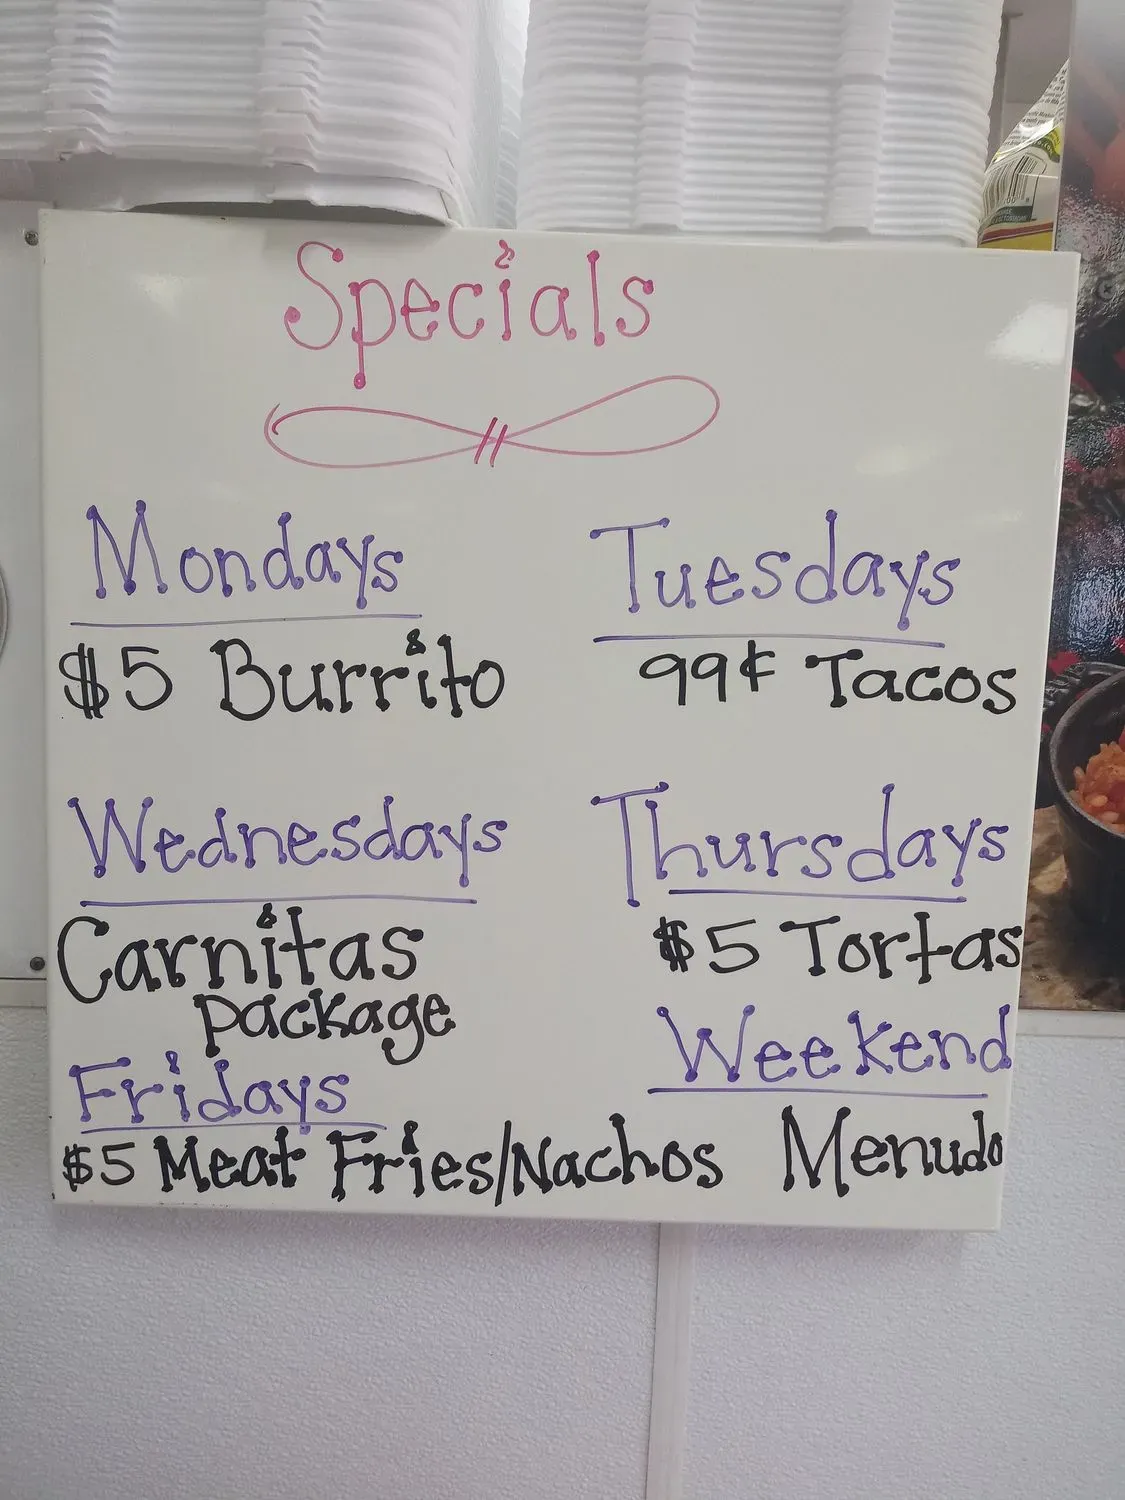 Specials
Mondays
$5 Burrito
Tuesdays
99¢ Tacos
Wednesdays
Carnitas
package
Thursdays
$5 Tortas
Fridays
$5 Meat Fries/Nachos
Weekend
Menudo